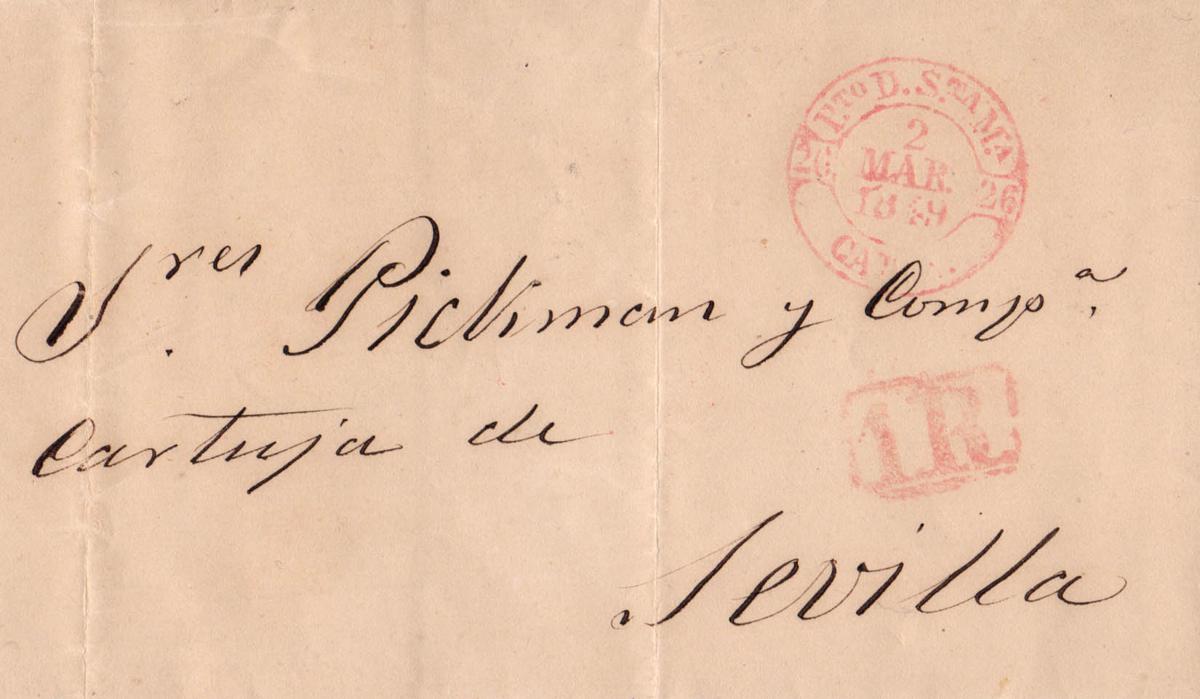 PTO D. S.TA M.A
2
MAR.
1849
26 26
Sres. Pickman y Compa.
Cartuja de
1R.
Sevilla